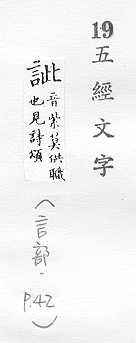 19 五經文字
訿 音紫莫供職
也見詩頌
(言部, P.42)